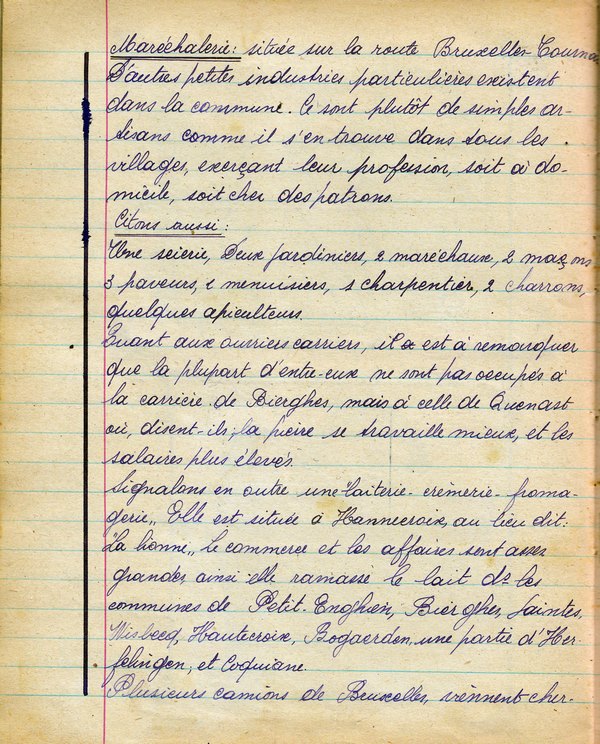 Maréchalerie: située sur la route Bruxelles-Tournai
D'autres petites industries particulières existent
dans la commune. Ce sont plutôt de simples ar-
tisans comme il s'en trouve dans tous les
villages, exerçant leur profession, soit à do-
micile, soit chez des patrons.
Citons aussi:
Une scierie, Deux jardiniers, 2 maréchaux, 2 maçons
3 paveurs, 2 menuisiers, 1 charpentier, 2 charrons,
quelques apiculteurs.
Quant aux ouvriers carriers, il est à remarquer
que la plupart d'entre-eux ne sont pas occupés à
la carrière de Bierghes, mais à celle de Quenast
où, disent-ils, la pierre se travaille mieux, et les
salaires plus élevés.
Signalons en outre une "laiterie-crèmerie-froma-
gerie". Elle est située à Hannecroix, au lieu dit:
"La bonne". Le commerce et les affaires sont assez
grandes, ainsi elle ramasse le lait ds les
communes de Petit-Enghien, Bierghes, Saintes,
Wisbecq, Hautecroix, Bogaerden, une partie d'Her-
felingen, et Coquiane.
Plusieurs camions de Bruxelles, viennent cher-